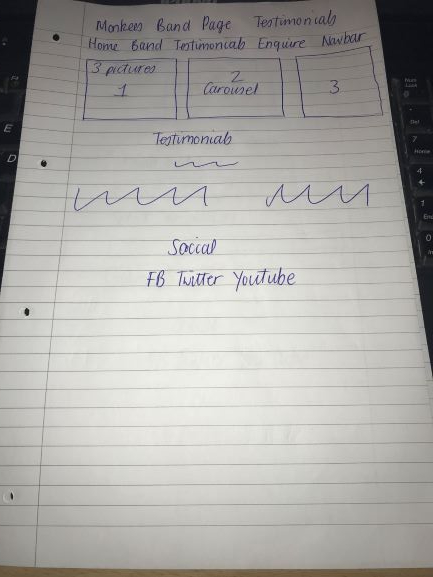 Monkees Band Page Testimonials
Home Band Testimonials Enquire Navbar
3 pictures
1
2
Carousel
3
Testimonials
Social
FB Twitter Youtube